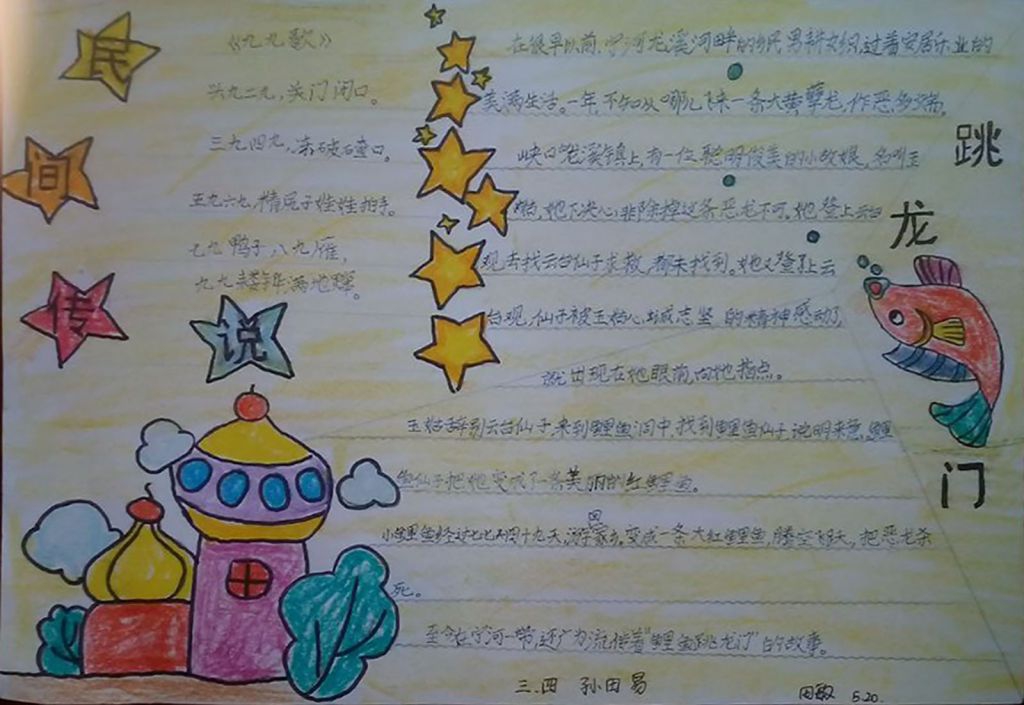 民
间
传
说
《九九歌》
头九二九,关门闭口。
三九四九,冻破碴口。
五九六九,精屁子娃娃拍手。
七九鸭子八九雁,
九九 满地
跳
龙
门
在很早以前,宁河龙溪河畔的乡民男耕女织,过着安居乐业的
美满生活。一年,不知从哪儿下来一条大黄孽龙,作恶多端,
峡口龙溪镇上,有一位聪明俊美的小姑娘,名叫玉
姑,她下决心,非除掉这条恶龙不可,她登上云台
观去找云台仙子求教,都未找到。她又登上云
台观,仙子被玉姑心诚志坚的精神感动了
就出现在她眼前,向她指点。
玉姑辞别云台仙子,来到鲤鱼洞中,找到鲤鱼仙子说明来意,鲤
鱼仙子把她变成了一条美丽的红鲤鱼。
小鲤鱼经过七七四十九天,游回家乡,变成一条大红鲤鱼,腾空飞天,把恶龙杀
死。
至今在宁河一带,还广为流传着"鲤鱼跳龙门"的故事。
三.四 孙田易
5.20.